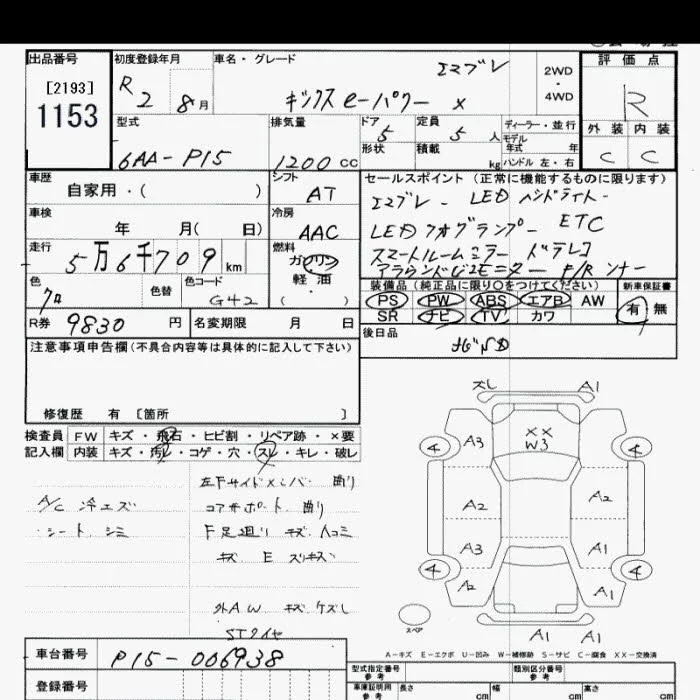 出品番号
[2193]
1153
初度登録年月
R 2 8月
車名・グレード
エマブレ
キックス e-パワー X
2WD
・
4WD
評価点
R
外装 内装
C C
型式
6AA-P15
排気量
1200 CC
ドア 5
形状
定員 5 人
積載 kg
ディーラー・並行
モデル年式 年
ハンドル 左・右
車歴
自家用・( )
シフト
AT
車検
年 月( 日)
冷房
AAC
走行
5万6千709 km
燃料
ガソリン
軽油
・( )
色
クロ
色替
色コード
G42
R券 9830 円
名変期限 月 日
セールスポイント (正常に機能するものに限ります)
エマブレ - LED ヘッドライト -
LED フォグランプ - ETC
スマートルームミラー ドラレコ
アラウンドビューモニター F/R ソナー
装備品(純正品に限り○をつけてください)
PS PW ABS エアB AW
SR ナビ TV カワ
新車保証書
有 無
後日品
ナビSD
注意事項申告欄(不具合内容等は具体的に記入して下さい)
修復歴 有 [箇所 ]
検査員記入欄
FW キズ・飛石・ヒビ割・リペア跡・×要
内装 キズ・汚れ・コゲ・穴・スレ・キレ・破レ
A/C 冷エズ
・シート シミ
左Fサイドメンバー 曲り
コアサポート 曲り
F足廻り キズ ヘコミ
キズ E スリキズ
外AW キズ ケズレ
STタイヤ
ズレ A1
A3 XX W3
4 4
A2 A2
A3 A1
4 4
A2 A1
スペア
A1 A1
A-キズ E-エクボ U-凹み W-補修跡 S-サビ C-腐食 XX-交換済
車台番号 P15-006938
登録番号
型式指定番号
類別区分番号
車庫証明用参考
長さ cm 幅 cm 高さ cm